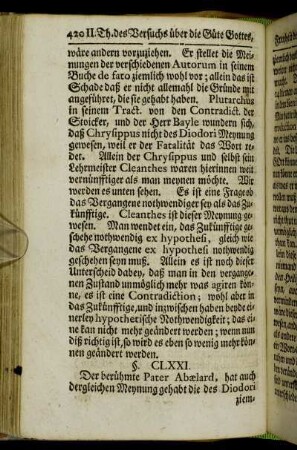 420 II. Th. des Versuchs über die Güte Gottes,
wäre andern vorzuziehen. Er stellet die Mei-
nungen der verschiedenen Autorum in seinem
Buche de fato ziemlich wohl vor; allein das ist
Schade daß er nicht allemahl die Gründe mit
angeführet, die sie gehabt haben. Plutarchus
in seinem Tract. von den Contradict. der
Stoicker, und der Herr Bayle wundern sich,
daß Chrysippus nicht des Diodori Meynung
gewesen, weil er der Fatalität das Wort re-
det. Allein der Chrysippus und selbst sein
Lehrmeister Cleanthes waren hierinnen weit
vernünfftiger als man meynen möchte. Wir
werden es unten sehen. Es ist eine Frage ob
das Vergangene nothwendiger sey als das Zu-
künfftige. Cleanthes ist dieser Meynung ge-
wesen. Man wendet ein, das Zukünfftige ge-
schehe nothwendig ex hypothesi, gleich wie
das Vergangene ex hypothesi nothwendig
geschehen seyn muß. Allein es ist noch dieser
Unterscheid dabey, daß man in den vergange-
nen Zustand unmöglich mehr was agiren kön-
ne, es ist eine Contradiction; wohl aber in
das Zukünfftige, und inzwischen haben beyde ei-
nerley hypothetische Nothwendigkeit; das ei-
ne kan nicht mehr geändert werden; wenn nun
diß richtig ist, so wird es eben so wenig mehr kön-
nen geändert werden.
§. CLXXI.
Der berühmte Pater Abælard, hat auch
dergleichen Meynung gehabt die des Diodori
ziem-